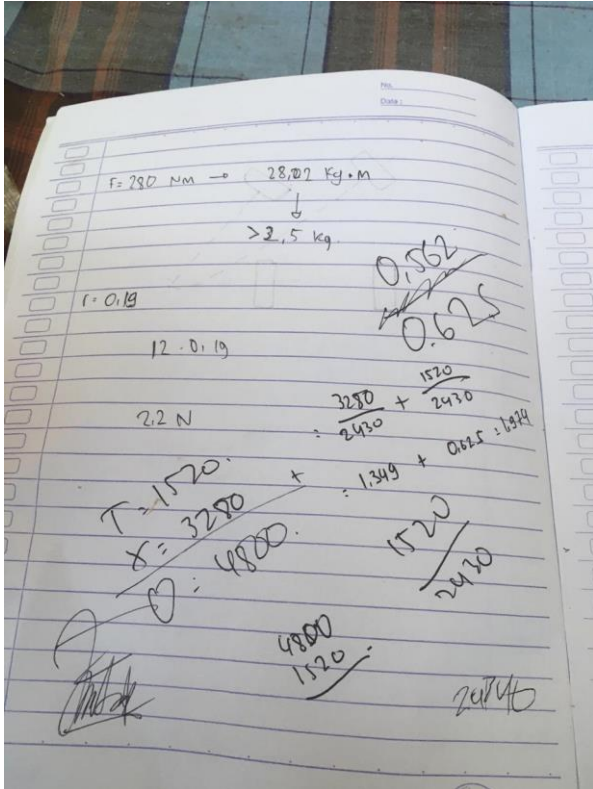 No.
Date :
F = 280 Nm → 28,02 Kg • M
↓
> 2,5 kg.
0,562
0.625
r = 0,19
12 . 0,19
2,2 N
= 3280/2430 + 1520/2430
= 1.349 + 0.625 = 1,974
T = 1520.
X = 3280 +
: 4800.
1520
2430
4800
1520 .